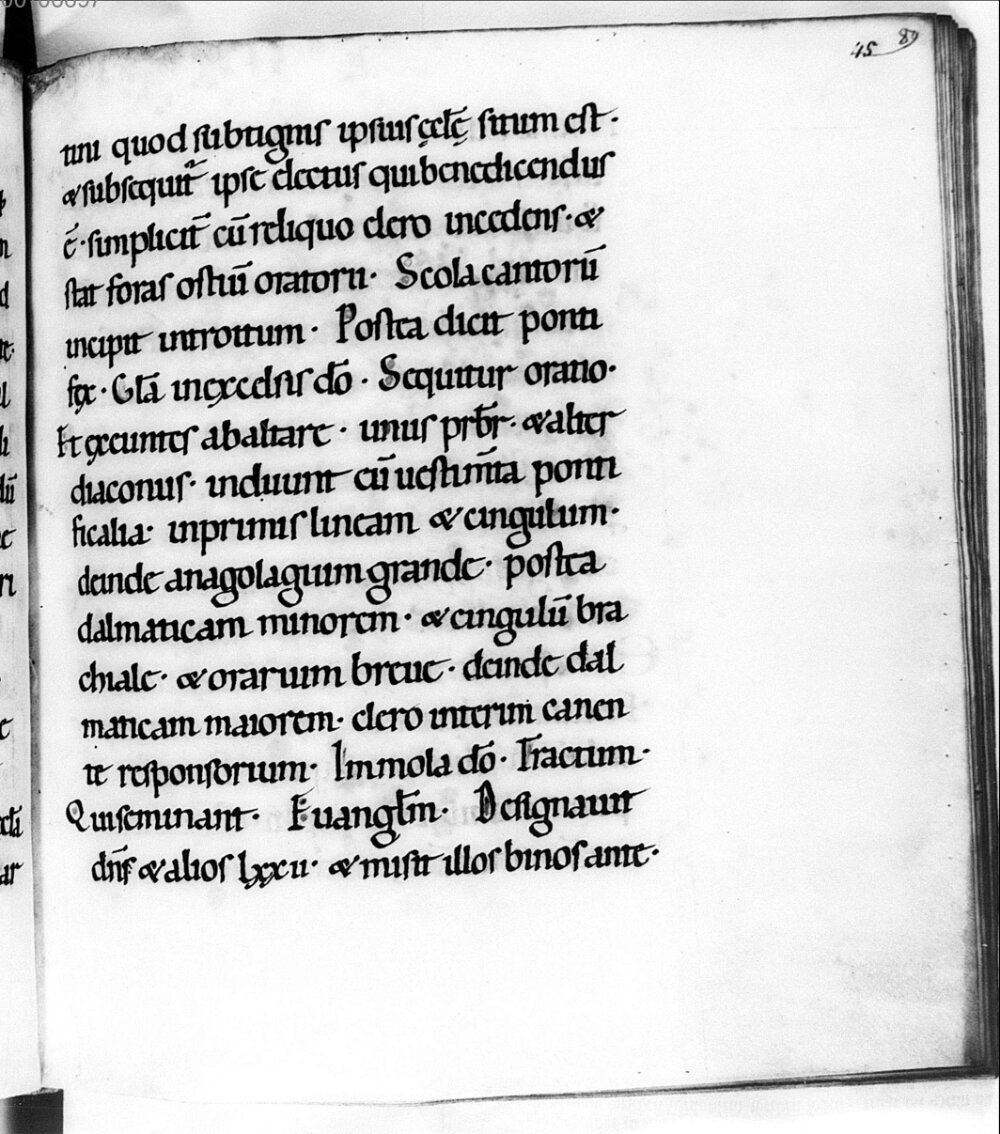 45 89
tini quod subtigniſ ipsiuſ ęcl̄ę situm est·
& subsequit̄ ipse electus qui benedicendus
ē· simplicit̄ cū reliquo clero incedens· &
stat foras ostiū oratorii· Scola cantorū
incipit introitum· Postea dicit ponti
fex· Gl̄a in excelsis dō· Sequitur oratio·
Et exeuntes ab altare· unus prb̄r· & alter
diaconus· induunt cū uestim̄ta ponti
ficalia· inprimis lineam & cingulum·
deinde anagolagium grande· postea
dalmaticam minorem· & cingulū bra
chiale· & orarium breue· deinde dal
maticam maiorem· clero interim canen
te responsorium· Immola dō· Tractum·
Qui seminant· Euangl̄m· Designauit
dn̄s & alios lxxii· & misit illos binos ante·